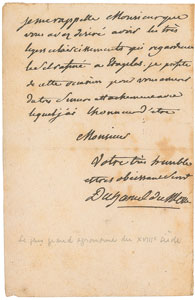 je me rappelle Monsieur que
vous avez désiré avoir les très
légers éclaircissements qui regardent
je profite
de cette occasion pour vous assurer
du très sincère attachement avec
lequel j'ai l'honneur d'être
Monsieur
Votre très humble
et très obéissant servit
Duhamel du Monceau
Le plus grand agronome du XVIIIe siècle